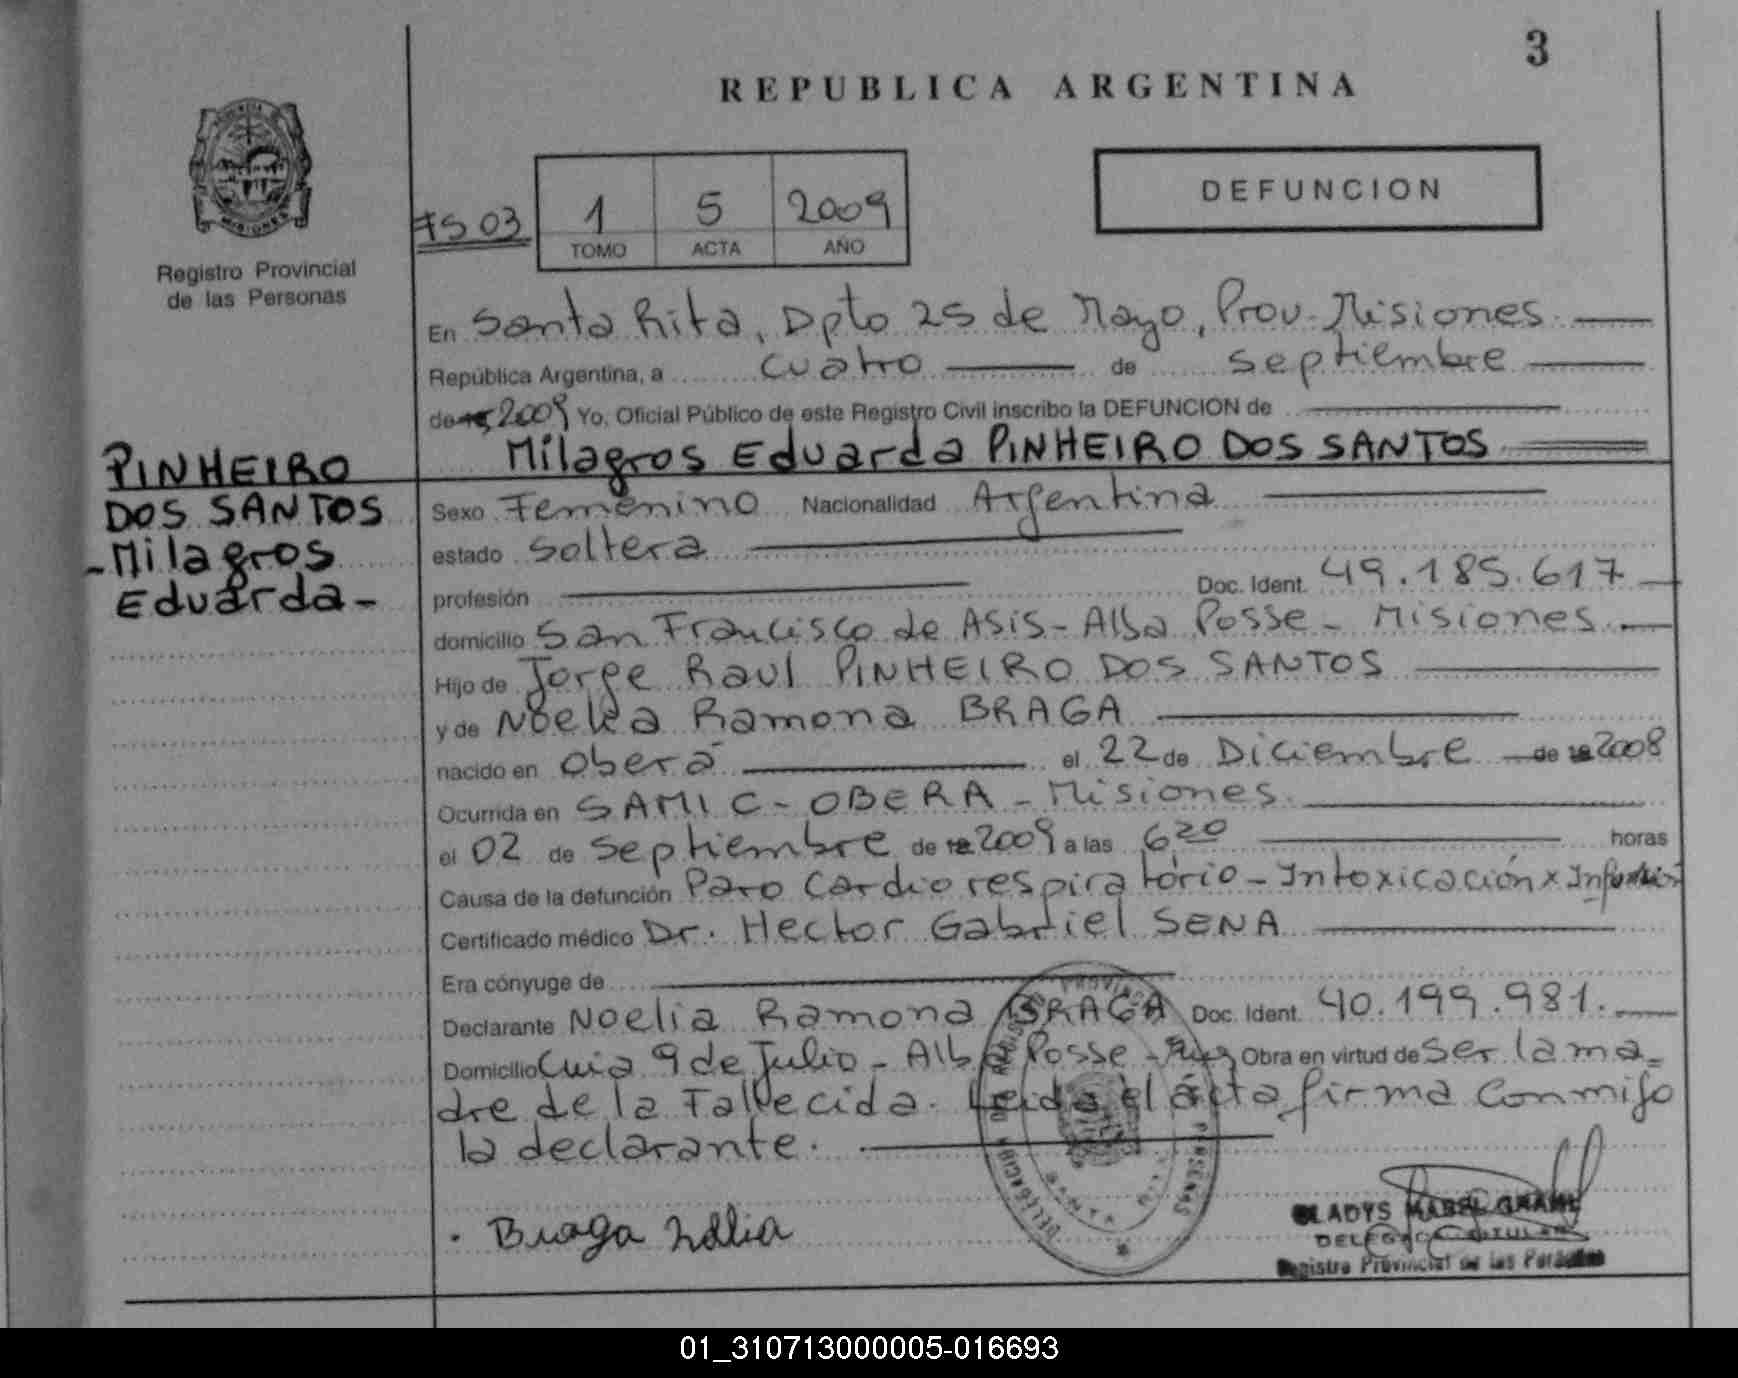 3
REPUBLICA ARGENTINA
DEFUNCION
FS 03
1 5 2009
TOMO ACTA AÑO
Registro Provincial
de las Personas
En Santa Rita, Dpto 25 de Mayo, Prov. Misiones
República Argentina, a cuatro de septiembre
de 2009 Yo, Oficial Público de este Registro Civil inscribo la DEFUNCION de
Milagros Eduarda PINHEIRO DOS SANTOS
PINHEIRO
DOS SANTOS
- Milagros
Eduarda -
Sexo Femenino Nacionalidad Argentina
estado Soltera
profesión Doc. Ident. 49.185.617
domicilio San Francisco de Asis - Alba Posse - Misiones
Hijo de Jorge Raul PINHEIRO DOS SANTOS
y de Noelia Ramona BRAGA
nacido en Oberá el 22 de Diciembre de 2008
Ocurrida en SAMIC - OBERA - Misiones
el 02 de Septiembre de 2009 a las 6 20 horas
Causa de la defunción Paro Cardio respiratorio - Intoxicación x
Certificado médico Dr. Hector Gabriel SENA
Era cónyuge de
Declarante Noelia Ramona BRAGA Doc. Ident. 40.199.981.
Domicilio 9 de Julio - Alba Posse - Obra en virtud de ser la ma=
dre de la Fallecida. Leida el acta firma conmigo
la declarante.
Braga Noelia
GLADYS MABEL
DELEGADA TITULAR
Registro Provincial de las Personas
01_310713000005-016693